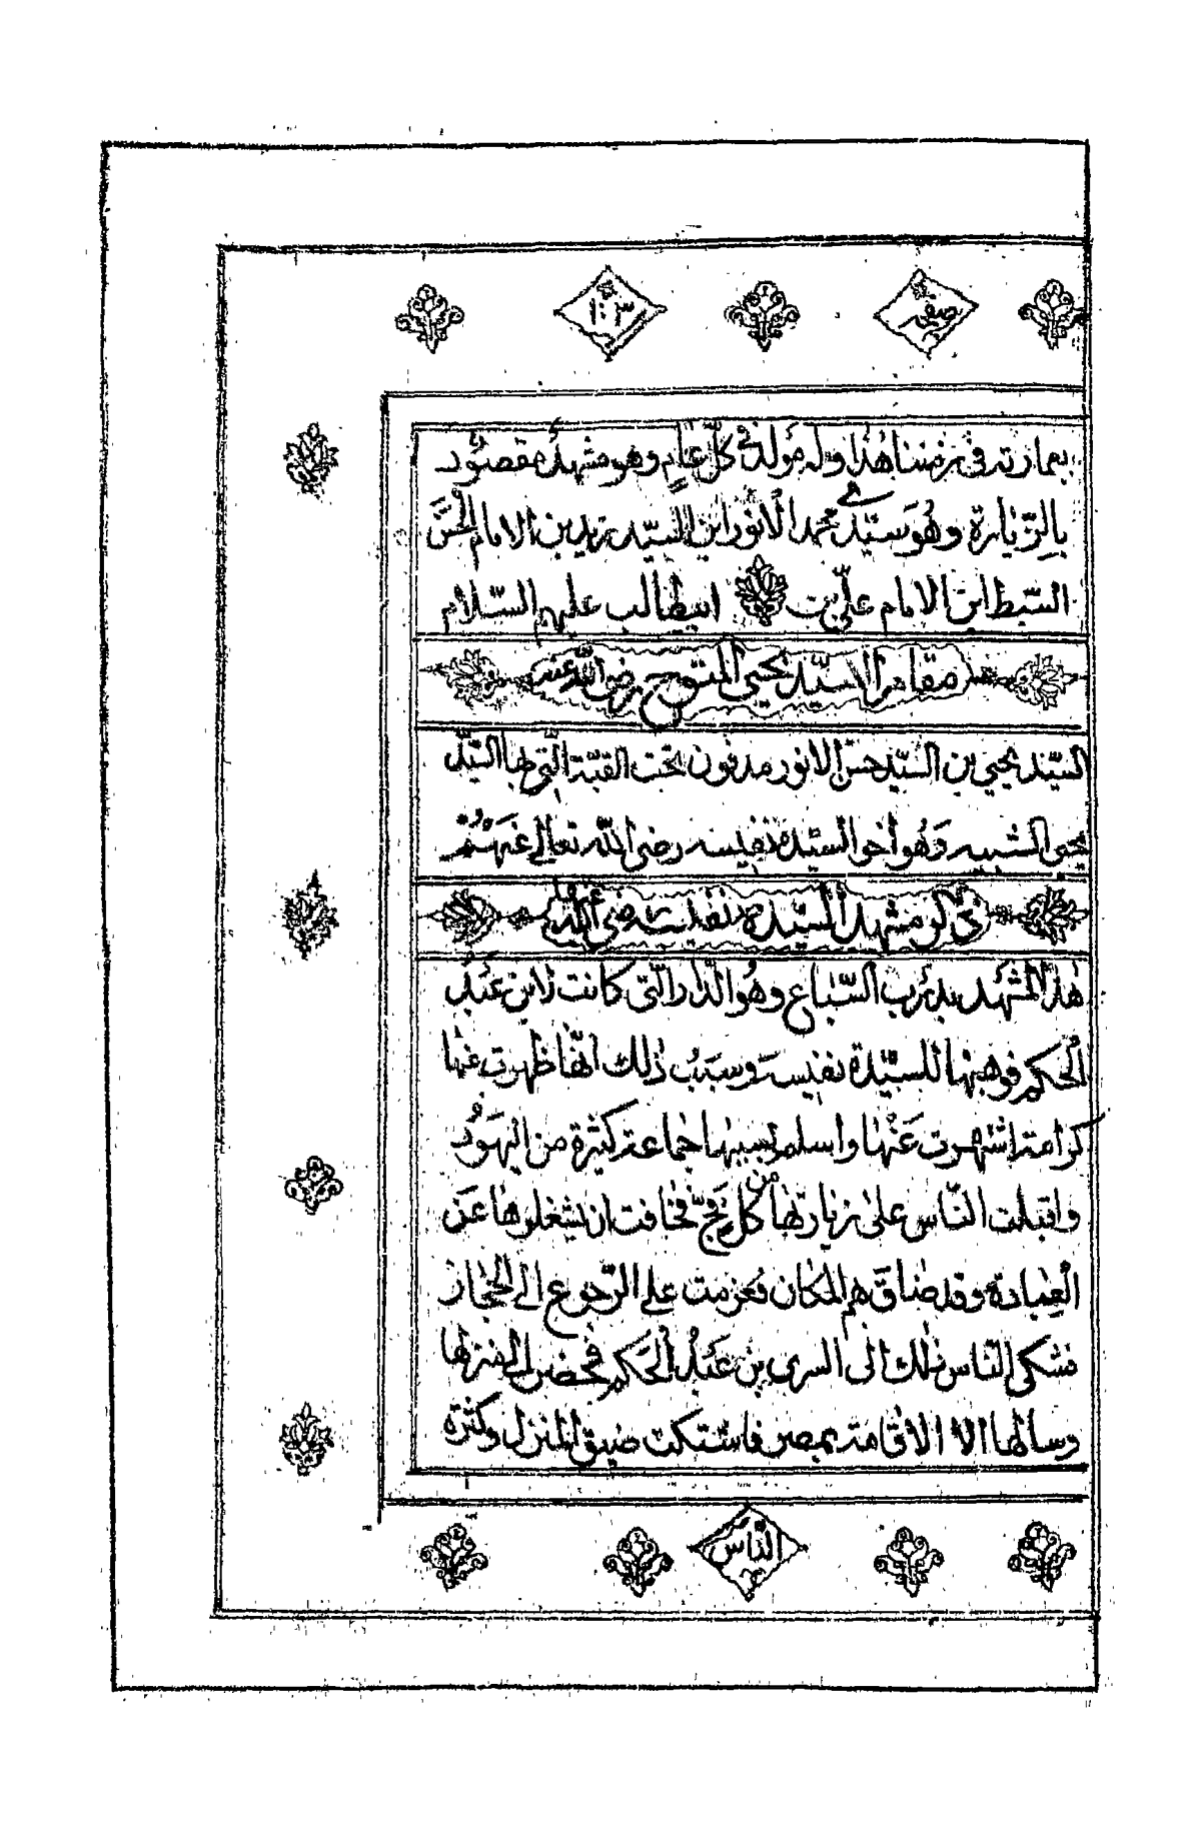 صفحة ١٠٣
بعمارته فى زمننا هٰذا وله مَولد فى كلّ عَامٍ وهو مشهدٌ مقصُود
بالزّيارة وهُو سَيّدى محمد الأنور ابن السيّد زيد بن الامام الحسَن
السّبط ابن الامام علىّ بن ابيطالب عليهم السّلام
مقام السيّد يحيى المتوج رضى اللّه عنه
السيّد يحيى بن السيّد حسن الانور مدفون تحت القبّة الّتى بها السيّد
يحيى الشبيه وَهُو أخو السيّدة نفيسه رضى اللّه تعالى عَنهُم
ذكر مشهد السيّدة نفيسة رضى اللّه عنها
هٰذا المشهَد بدَرب السّباع وهُو الدّار الّتى كانت لابن عَبْد
الْحكم فوهبها للسيّدة نفيسة وسبَبُ ذلك انّها ظهرت عنها
كرامة اشتهرت عَنْها واسلم بسببها جماعة كثيرة من اليهَودُ
واقبلت النّاس علىٰ زيارتها من كل فجّ فخافت ان يشغلوها عَن
الْعِبادة وقد ضاقَ بهم المكان فعزمت على الرّجوع الى الحجاز
فشكى النّاس ذلك الى السرى بن عَبْد الْحَكم فحضر الى منزلها
وسالها الا الاقامة بمصر فاشتكت ضيق المنزل وكثرة
النّاس